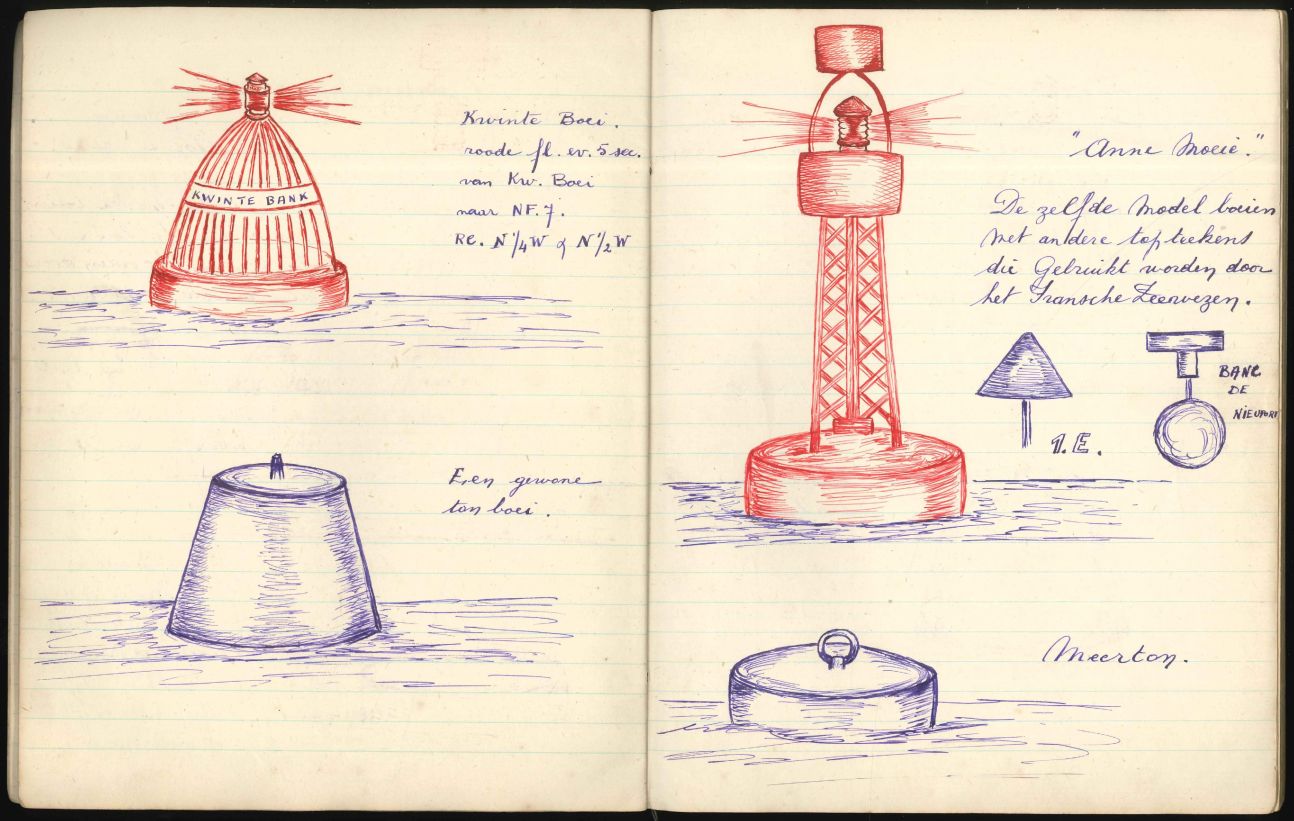 KWINTE BANK
Kwinte Boei.
roode fl. ev. 5 sec.
van Kw. Boei
naar NF. 7.
Re. N 1/4 W of N 1/2 W
Een gewone
ton boei.
"Anne Moeie."
De zelfde Model boeien
Met andere topteekens
die Gebruikt worden door
het Fransche Zeewezen.
1.E.
BANC
DE
NIEUPORT
Meerton.